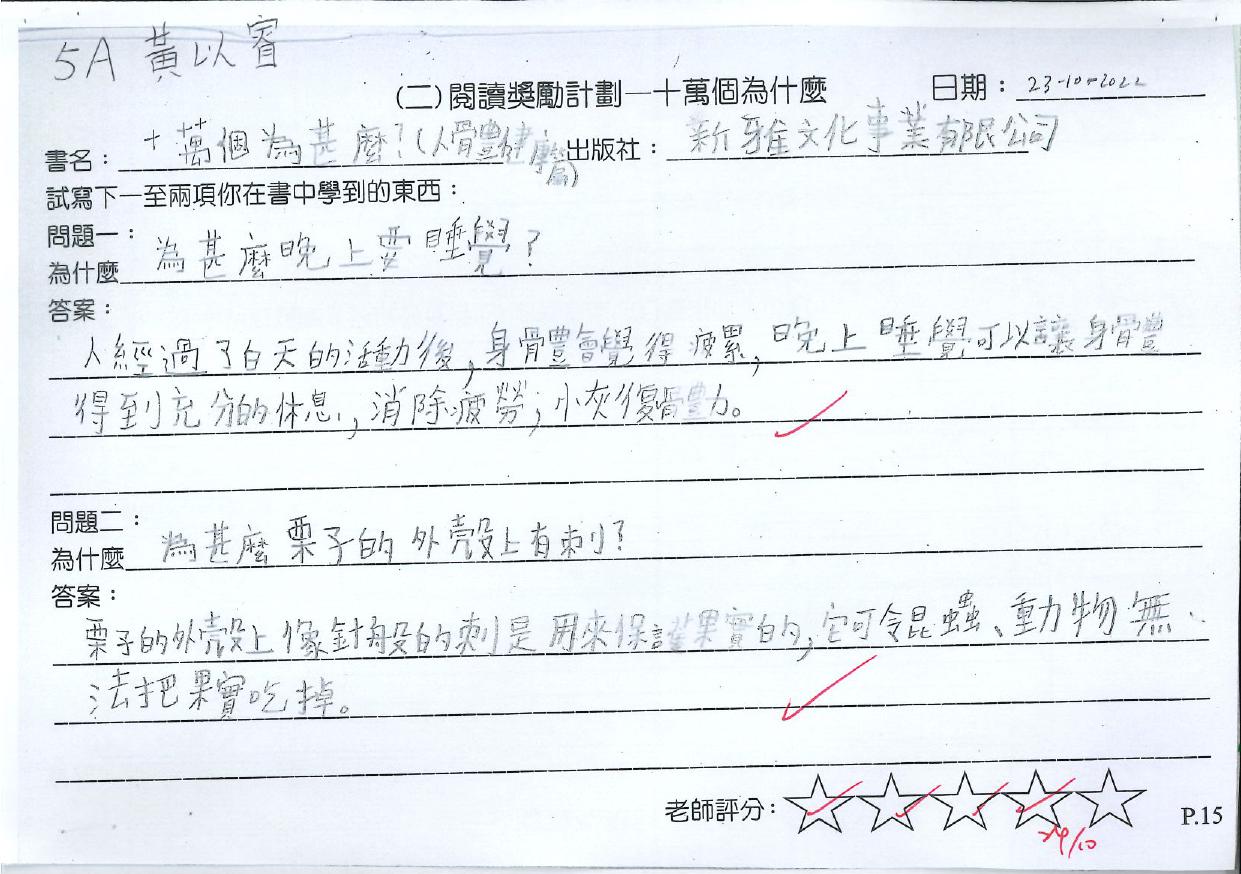 5A 黃以睿
(二)閱讀獎勵計劃—十萬個為什麼 日期：23-10-2022
書名：十萬個為甚麼?(人體健康篇) 出版社：新雅文化事業有限公司
試寫下一至兩項你在書中學到的東西：
問題一：
為什麼 為甚麼晚上要睡覺?
答案：
人經過了白天的活動後,身體會覺得疲累,晚上睡覺可以讓身體
得到充分的休息,消除疲勞;恢復體力。
問題二：
為什麼 為甚麼栗子的外殼上有刺?
答案：
栗子的外殼上像針般的刺是用來保護果實的,它可令昆蟲、動物無
法把果實吃掉。
老師評分：
24/10
P.15